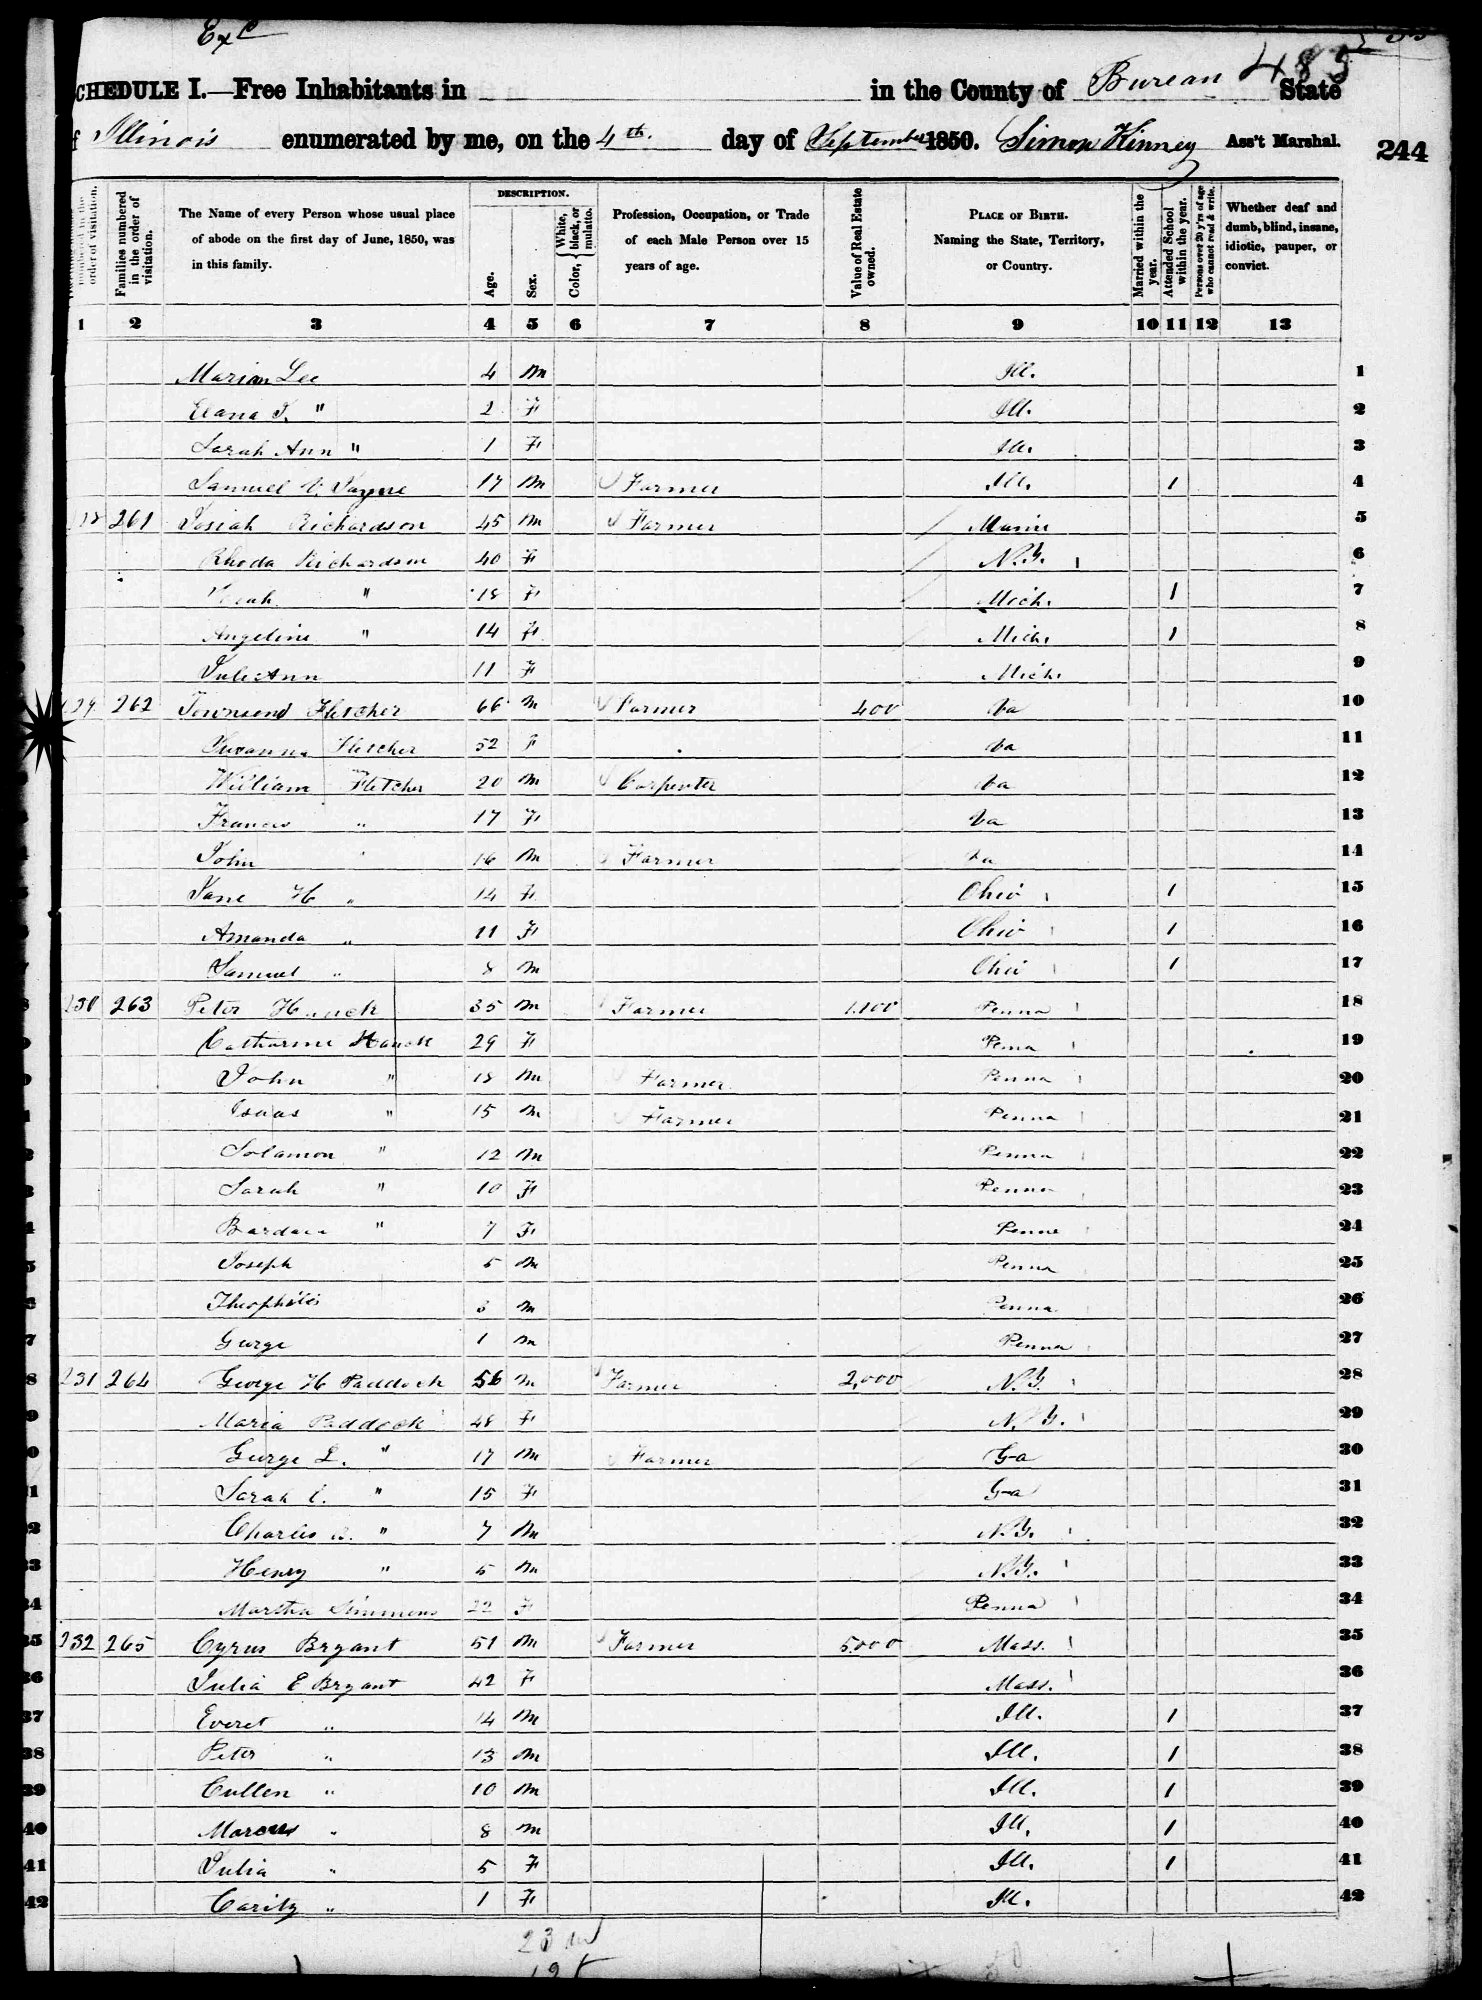 Exc
485
SCHEDULE I.—Free Inhabitants in in the County of Bureau State
of Illinois enumerated by me, on the 4th. day of September 1850. Simon Kinney Ass't Marshal.
244
numbered in the order of visitation.
Families numbered in the order of visitation.
The Name of every Person whose usual place of abode on the first day of June, 1850, was in this family.
DESCRIPTION.
Age.
Sex.
Color, White, black, or mulatto.
Profession, Occupation, or Trade of each Male Person over 15 years of age.
Value of Real Estate owned.
PLACE OF BIRTH. Naming the State, Territory, or Country.
Married within the year.
Attended School within the year.
Persons over 20 y'rs of age who cannot read & write.
Whether deaf and dumb, blind, insane, idiotic, pauper, or convict.
1 2 3 4 5 6 7 8 9 10 11 12 13
Marion Lee 4 M Ill. 1
" 2 F Ill. 2
Sarah Ann " 1 F Ill. 3
Samuel 17 M Farmer Ill. 1 4
261 Josiah Richardson 45 M Farmer Maine 5
Rhoda Richardson 40 F N.Y. 6
" 18 F Mich. 1 7
Angeline " 14 F Mich. 1 8
Julie Ann 11 F Mich. 9
229 262 Townsend Fletcher 66 M Farmer 400 Va 10
Susanna Fletcher 52 F Va 11
William Fletcher 20 M Carpenter Va 12
Frances " 17 F Va 13
John " 16 M Farmer Va 14
Jane H " 14 F Ohio 1 15
Amanda " 11 F Ohio 1 16
Samuel " 8 M Ohio 1 17
230 263 Peter Hauck 35 M Farmer 1.100 Penna 18
Catharine Hauck 29 F Penna 19
John " 18 M Farmer Penna 20
" 15 M Farmer Penna 21
Solamon " 12 M Penna 22
Sarah " 10 F Penna 23
" 7 F Penna 24
Joseph 5 M Penna 25
3 M Penna 26
Gurge 1 M Penna 27
231 264 George H Paddock 56 M Farmer 2,000 N.Y. 28
Maria Paddock 48 F N.Y. 29
Gurge L. " 17 M Farmer Ga 30
Sarah C. " 15 F Ga 31
Charles " 7 M N.Y. 32
Henry " 5 M N.Y. 33
Martha Simmens 22 F Penna 34
232 265 Cyrus Bryant 51 M Farmer 5.000 Mass. 35
Julia E Bryant 42 F Mass. 36
Everet " 14 M Ill. 1 37
Peter " 13 M Ill. 1 38
Cullen " 10 M Ill. 1 39
Marcus " 8 M Ill. 1 40
Julia " 5 F Ill. 1 41
Carity " 1 F Ill. 42
23 M
19 F